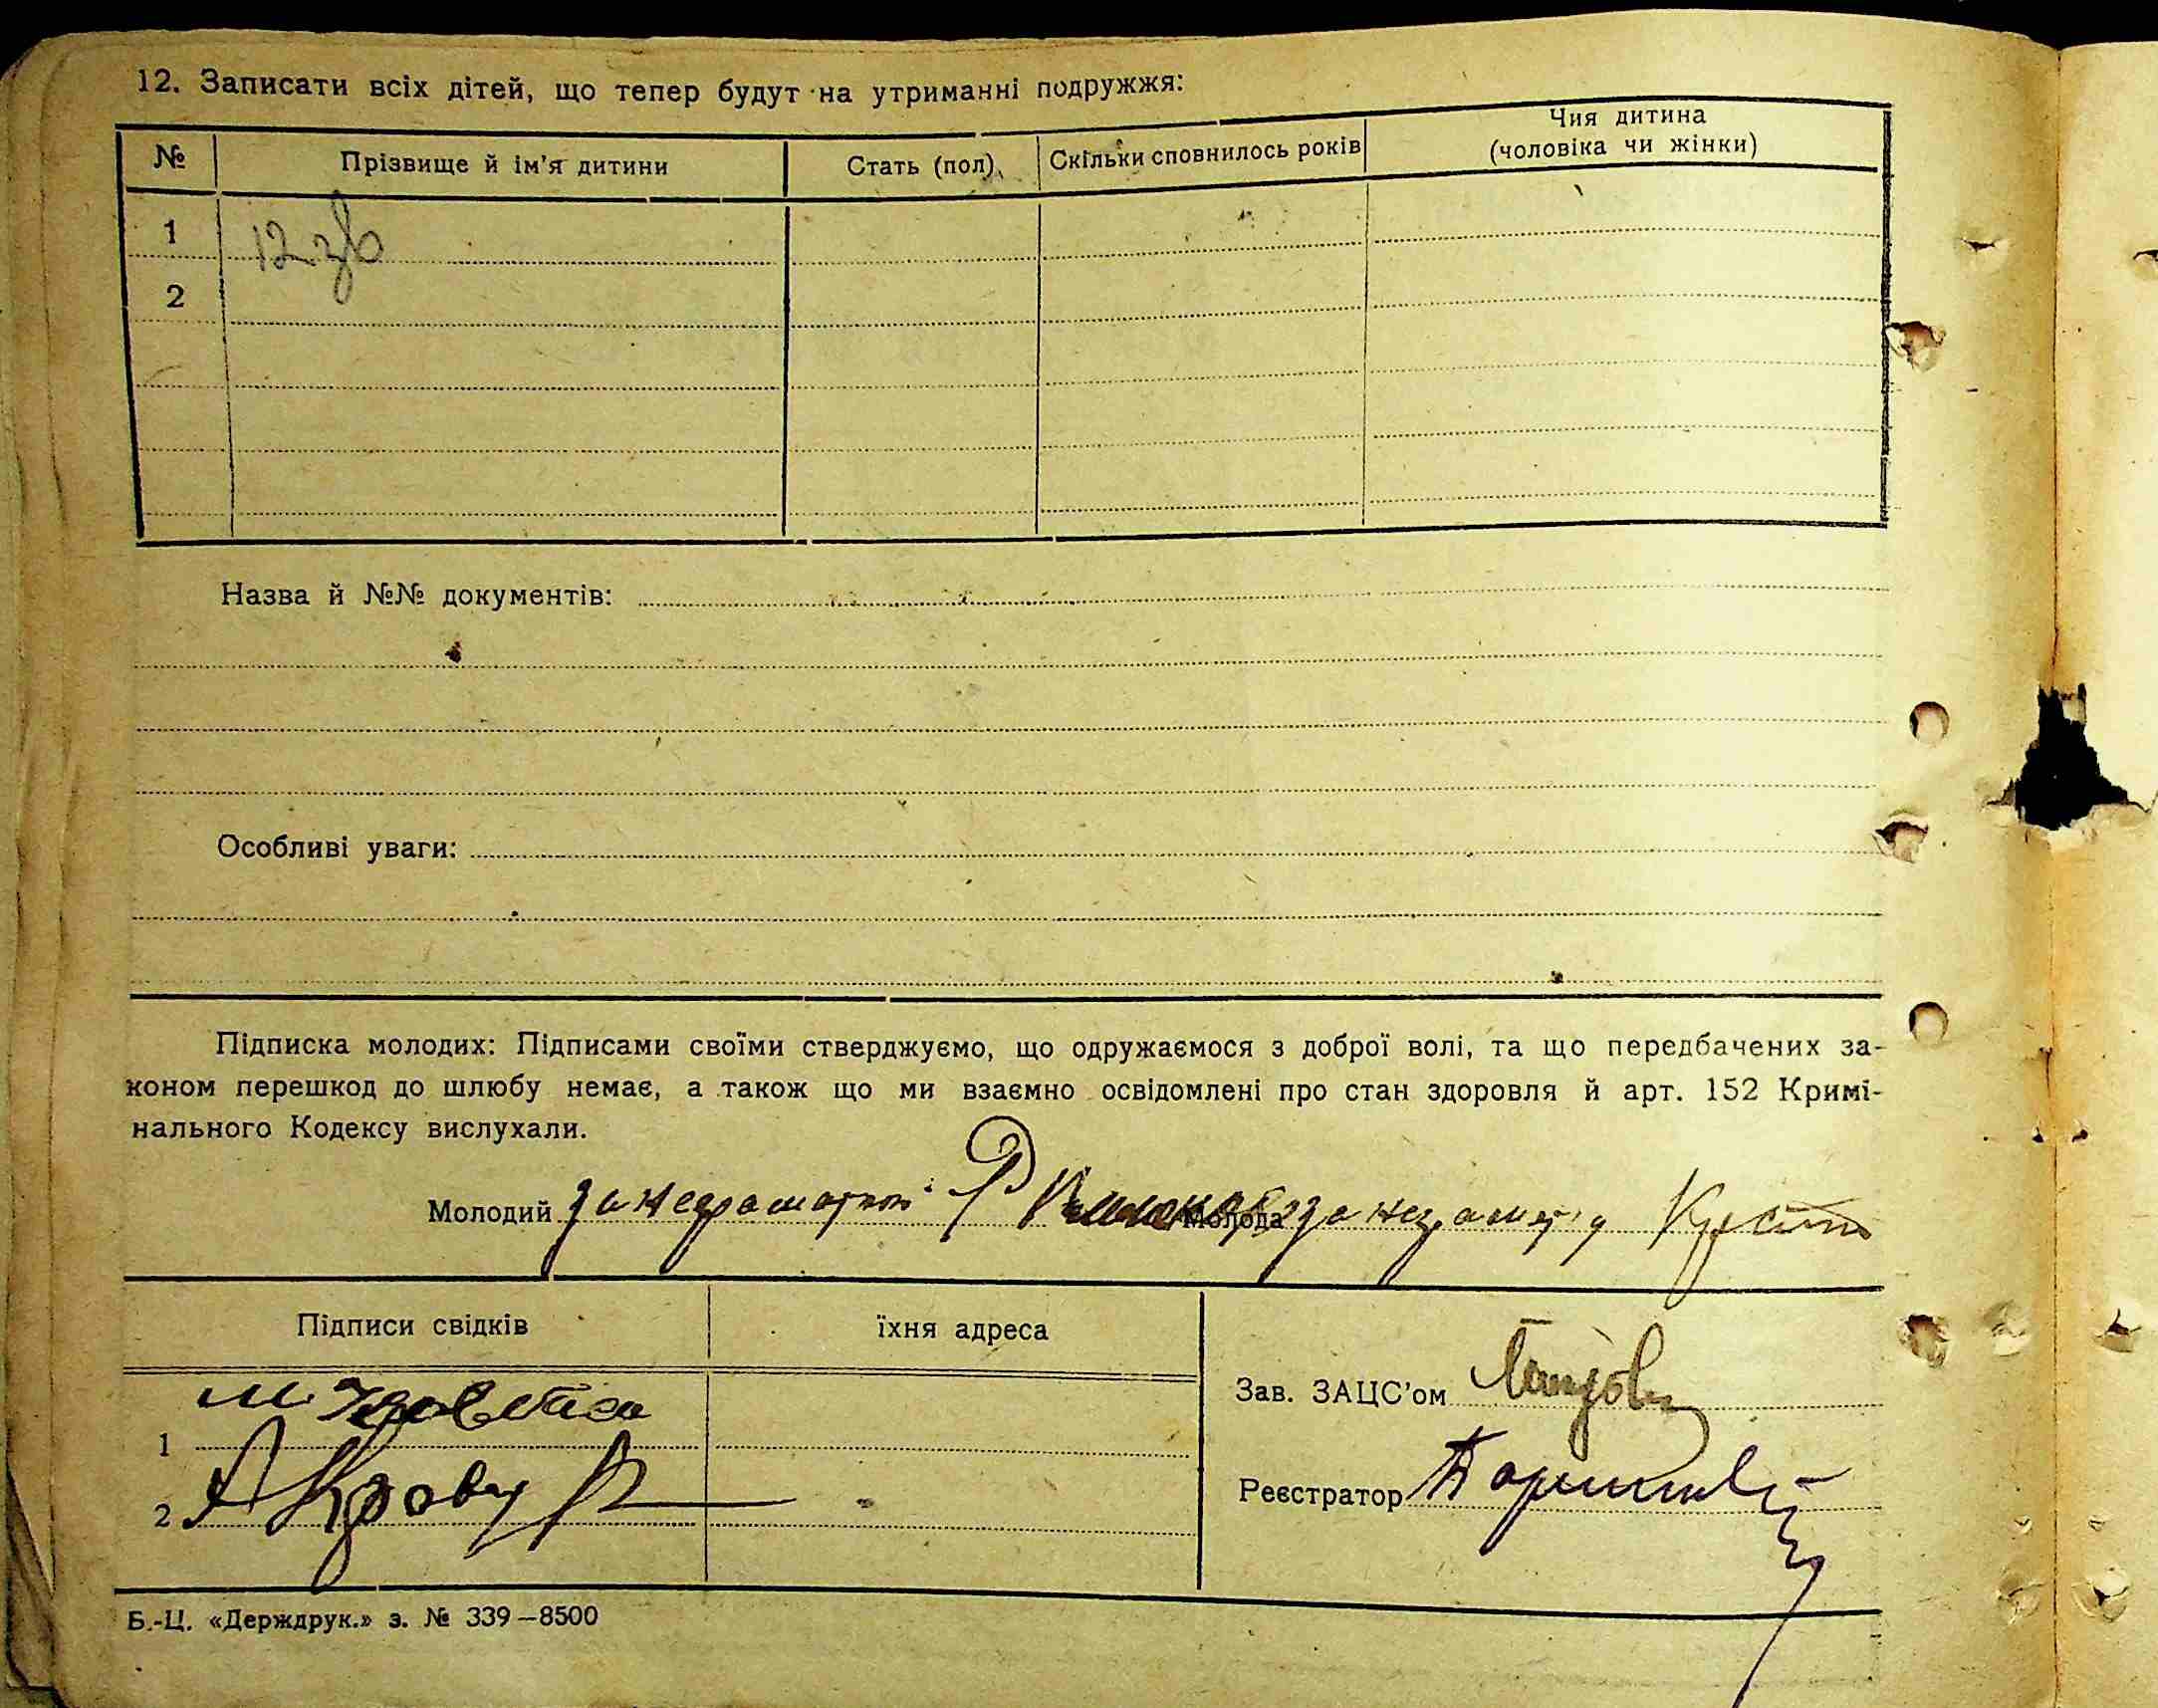 12. Записати всіх дітей, що тепер будут на утриманні подружжя:
№ Прізвище й ім'я дитини Стать (пол) Скільки сповнилось років Чия дитина (чоловіка чи жінки)
1
2
Назва й №№ документів:
Особливі уваги:
Підписка молодих: Підписами своїми стверджуємо, що одружаємося з доброї волі, та що передбачених за-
коном перешкод до шлюбу немає, а також що ми взаємно освідомлені про стан здоровля й арт. 152 Кримі-
нального Кодексу вислухали.
Молодий за неграмотного Молода за неграмот
Підписи свідків їхня адреса
Зав. ЗАЦС'ом
1
Реєстратор
2
Б.-Ц. «Держдрук.» з. № 339—8500